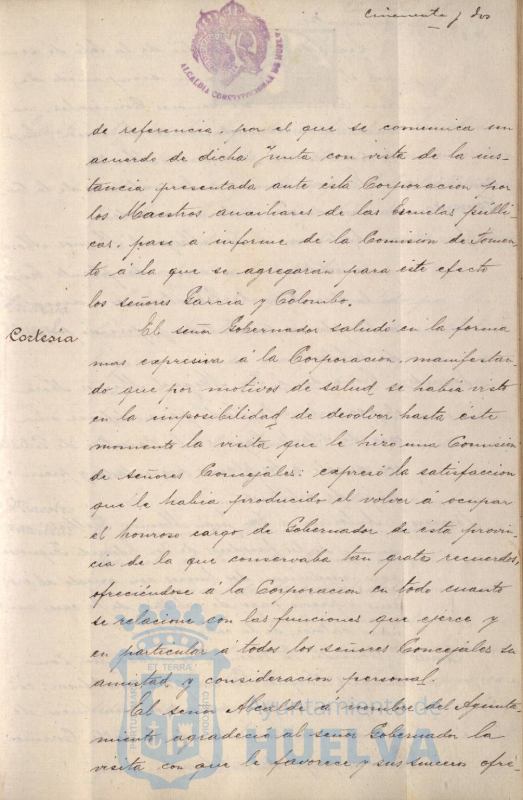 Cincuenta y dos
ALCALDIA CONSTITUCIONAL DE
de referencia, por el que se comunica un
acuerdo de dicha Junta con vista de la ins-
tancia presentada ante esta Corporacion por
los Maestros auxiliares de las Escuelas públi-
cas, pase á informe de la Comision de Fomen-
to á la que se agregarán para este efecto
los señores Garcia y Colombo.
Cortesía
El señor Gobernador saludó en la forma
mas expresiva á la Corporacion, manifestan-
do que por motivos de salud se habia visto
en la imposibilidad de devolver hasta este
momento la visita que le hizo una Comision
de señores Concejales: expresó la satisfaccion
que le habia producido el volver á ocupar
el honroso cargo de Gobernador de esta provin-
cia de la que conservaba tan gratos recuerdos,
ofreciéndose á la Corporacion en todo cuanto
se relacione con las funciones que ejerce y
en particular á todos los señores Concejales su
amistad y consideracion personal.
El señor Alcalde á nombre del Ayunta-
miento agradeció al señor Gobernador la
visita con que le favorece y sus sinceros ofre-
ET TERRÆ
PORTUS MARIS
CUSTODIA
Ayuntamiento de
HUELVA